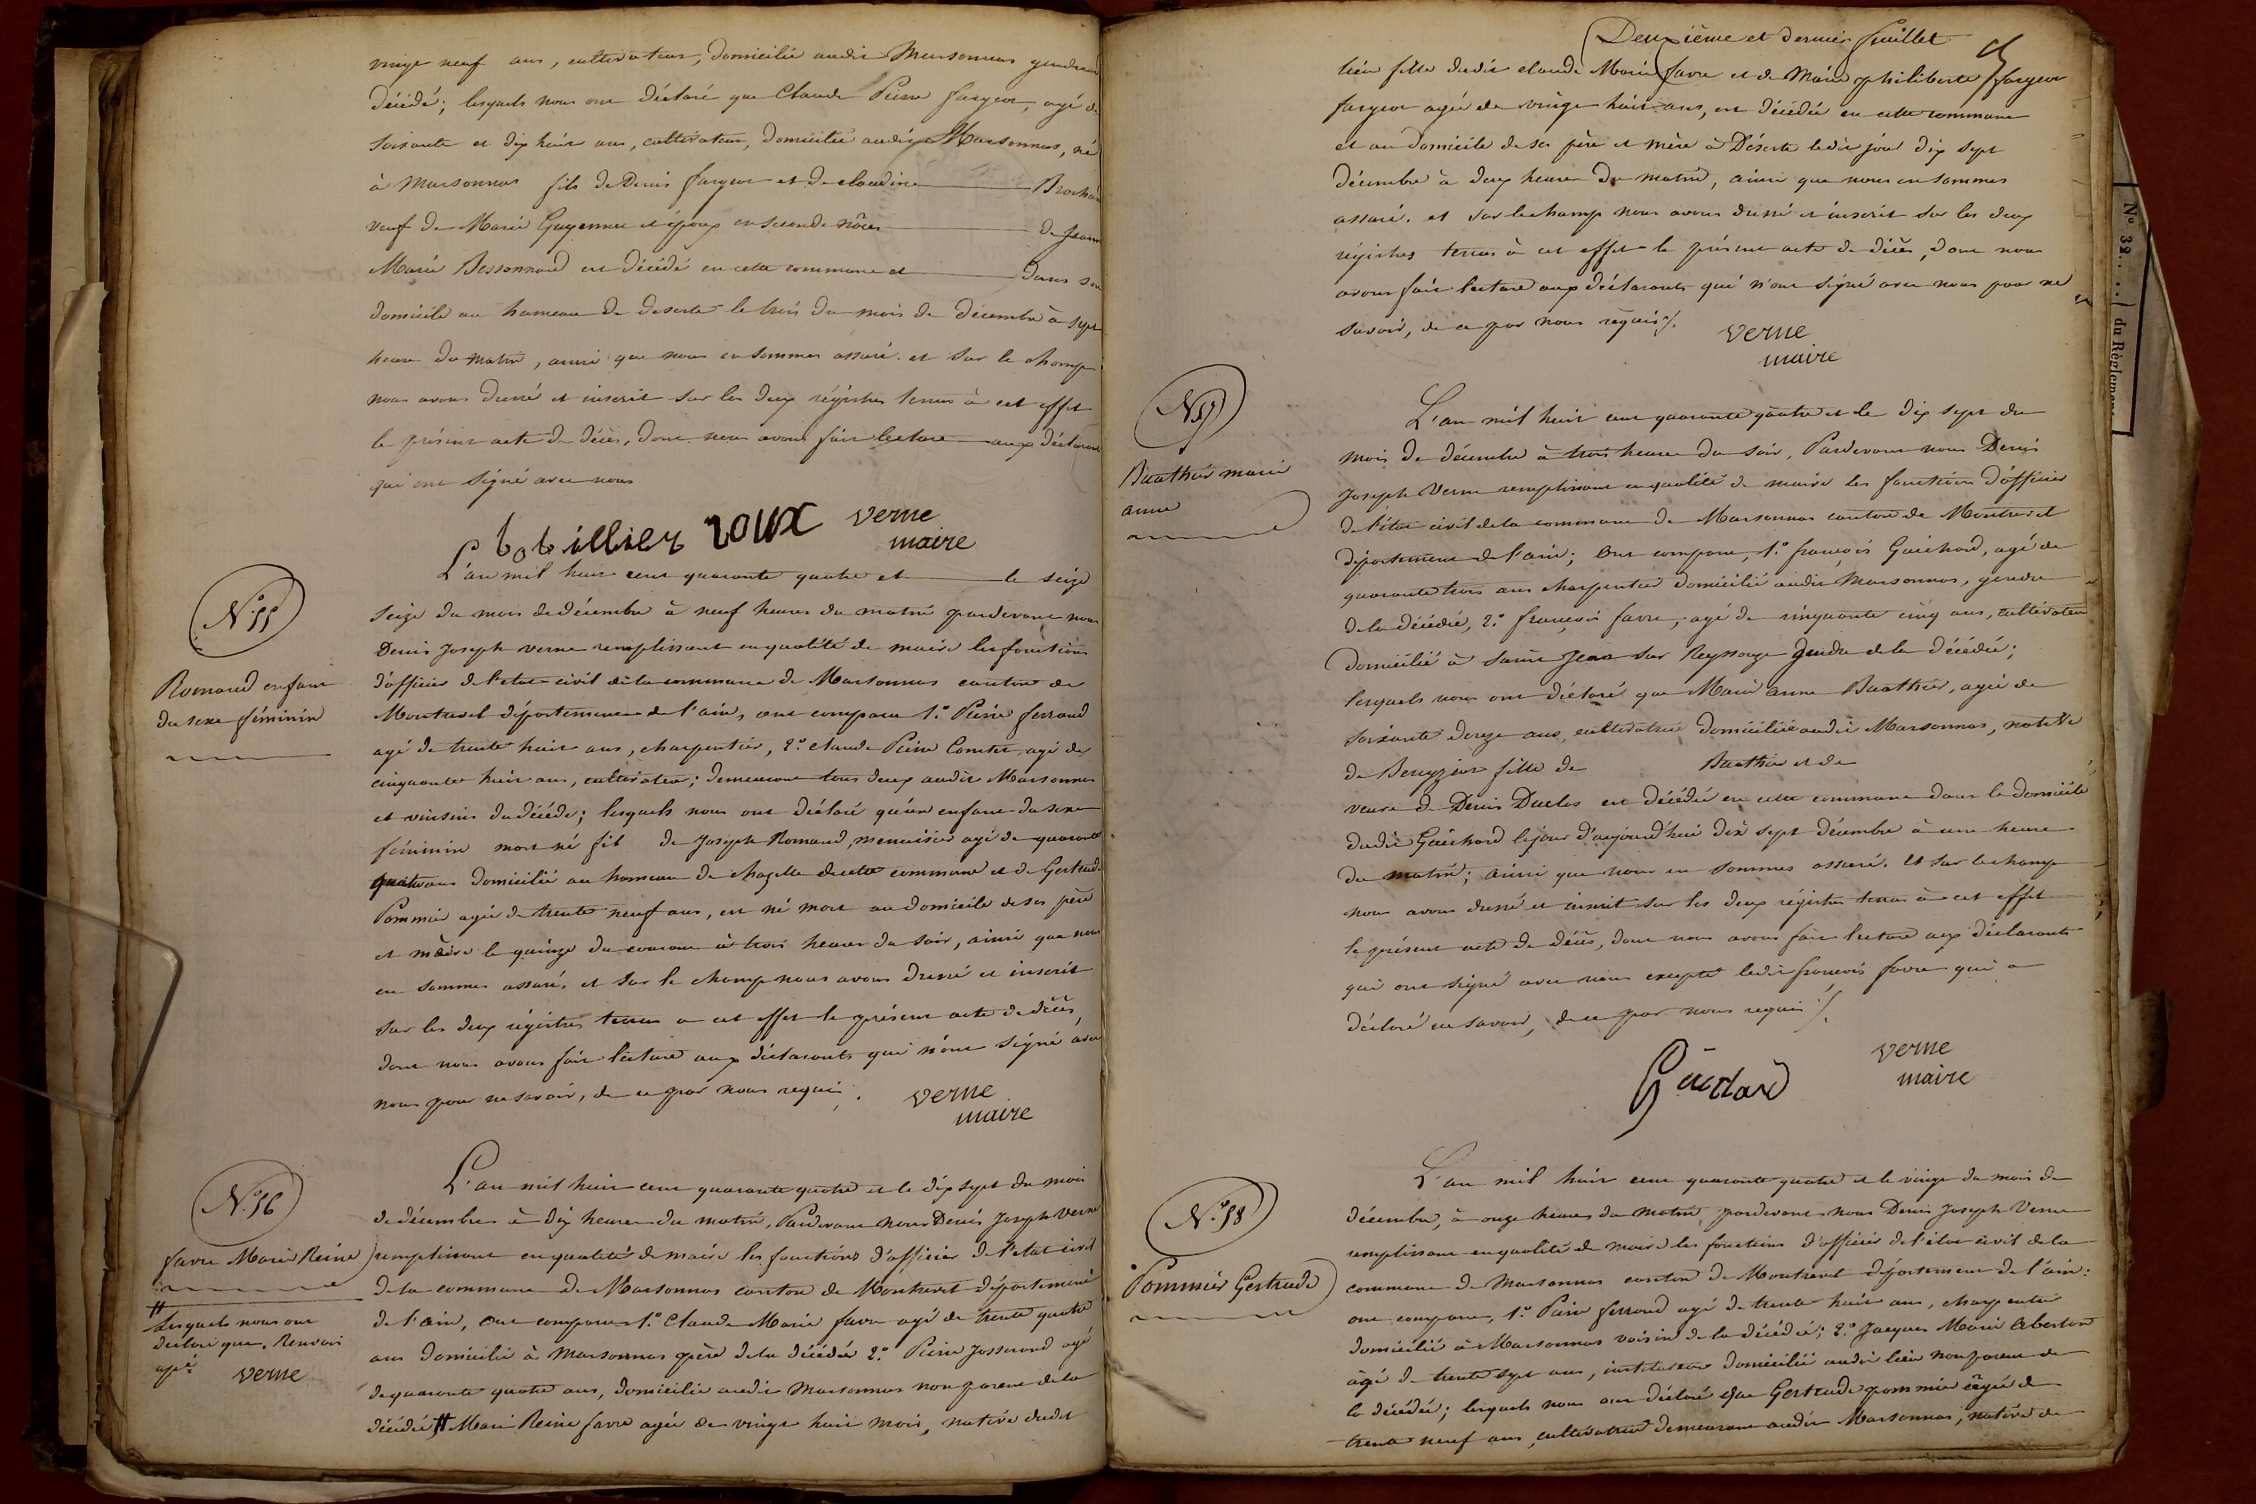 vingt neuf ans, cultivateur, domicilié audit Marsonnas gendre du
décédé; lesquels nous ont déclaré que Claude Pierre fargeot, agé de
soixante et dix huit ans, cultivateur, domicilié audit Marsonnas, né
à Marsonnas fils de Denis fargeot et de claudine Brochan
veuf de Marie Guyennet et époux en seconde nôces de Jeanne
Marie Bessonnard est décédé en cette commune et dans son
domicile au hameau de deserte le trois du mois de décembre à sept
heure du matin, ainsi que nous en sommes assuré. et sur le champ
nous avons dressé et inscrit sur les deux régistres tenus à cet effet
le présent acte de décès, dont nous avons fait lecture aux déclarant
qui ont signé avec nous
roux verne
maire
N° 55
Romand enfant
du sexe féminin
L'an mil huit cent quarante quatre et le seize
seize du mois de décembre à neuf heures du matin pardevant nous
Denis Joseph verne remplissant en qualité de maire les fonctions
d'officier de l'etat civil de la commune de Marsonnas canton de
Montrevel département de l'ain, ont comparu 1.° Pierre ferrand
agé de trente huit ans, charpentier, 2.° claude Pierre Comtet agé de
cinquante huit ans, cultivateur; demeurant tous deux audit Marsonnas
et voisins du décédé; lesquels nous ont déclaré qu'un enfant du sexe
féminin mort né fils de Joseph Romand, menuisier agé de quarante
quatre ans domicilié au hameau de chazelle de cette commune et de Gertrude
Pommier agée de trente neuf ans, est né mort au domicile de ses père
et mère le quinze du courant à trois heures du soir, ainsi que nous
en sommes assuré, et sur le champ nous avons dressé et inscrit
sur les deux régistres tenus a cet effet le présent acte de décès,
dont nous avons fait lecture aux déclarants qui n'ont signé avec
nous pour ne savoir, de ce par nous requis
verne
maire
N° 56
favre Marie Reine
L'an mil huit cent quarante quatre et le dix sept du mois
de décembre à dix heures du matin, Pardevant nous Denis Joseph Verne
remplissant en qualité de maire les fonctions d'officier de l'etat civil
de la commune de Marsonnas canton de Montrevel département
de l'ain, ont comparu 1.° Claude Marie favre agé de trente quatre
ans domicilié à Marsonnas père de la décédée 2.° Pierre Josserand agé
de quarante quatre ans, domicilié audit Marsonnas non parent de la
décédée, # Marie Reine favre agée de vingt huit mois, native dudit
# lesquels nous ont
déclaré que. Renvoi
appé verne
Deuxième et dernier feuillet
lieu fille dudit claude Marie favre et de Marie philiberte fargeot
fargeot agée de vingt huit ans, est décédée en cette commune
et au domicile de ses père et mère à Déserte ledit jour dix sept
décembre à deux heures du matin, ainsi que nous en sommes
assuré. et sur le champ nous avons dressé et inscrit sur les deux
régistres tenus à cet effet le présent acte de décès, dont nous
avons fait lecture aux déclarants qui n'ont signé avec nous pour ne
savoir, de ce par nous requis
verne
maire
N° 57
Buathier marie
anne
L'an mil huit cent quarante quatre et le dix sept du
mois de décembre à trois heures du soir, Pardevant nous Denis
Joseph Verne remplissant en qualité de maire les fonctions d'officier
de l'état civil de la commune de Marsonnas canton de Montrevel
département de l'ain; ont comparu, 1.° françois Guichard, agé de
quarante trois ans charpentier domicilié audit Marsonnas, gendre
de la décédée, 2.° françois favre, agé de cinquante cinq ans, cultivateur
domicilié à saint Jean sur Reyssouze gendre de la décédée;
lesquels nous ont déclaré que Marie anne Buathier, agée de
soixante douze ans, cultivatrice domiciliée audit Marsonnas, native
de Bereyziat fille de Buathier et de
veuve de Denis Duclos est décédée en cette commune dans le domicile
dudit Guichard le jour d'aujourd'hui dix sept décembre à une heure
du matin; ainsi que nous en sommes assuré. Et sur le champ
nous avons dressé et inscrit sur les deux régistres tenus à cet effet
le présent acte de décès, dont nous avons fait lecture aux déclarants
qui ont signé avec nous excepté ledit françois favre qui a
déclaré ne savoir, de ce par nous requis
Guichard verne
maire
N.° 58
Pommier Gertrude
L'an mil huit cent quarante quatre et le vingt du mois de
décembre, à onze heures du matin, pardevant nous Denis Joseph Verne
remplissant en qualité de maire les fonctions d'officier de l'état civil de la
commune de Marsonnas canton de Montrevel département de l'ain:
ont comparu, 1.° Pierre ferrand agé de trente huit ans, charpentier
domicilié à Marsonnas voisin de la décédée; 2.° Jacques Marie
âgé de trente sept ans, instituteur domicilié audit lieu non parent de
la décédée; lesquels nous ont déclaré que Gertrude pommier âgée de
trente neuf ans, cultivatrice demeurant audit Marsonnas, native de
N° 32.... du Règlement